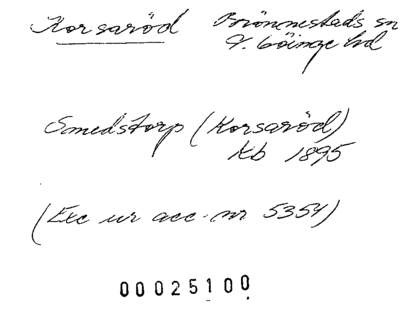 Korsaröd Brönnestads sn
V. Göinge hd
Smedstorp (Korsaröd)
Kb 1895
(Exc ur acc. nr 5354)
00025100